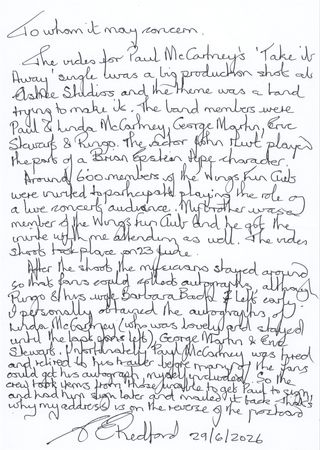 To whom it may concern.
The video for Paul McCartney's 'Take it
Away' single was a big production shot at
Elstree Studios and the theme was a band
trying to make it. The band members were
Paul & Linda McCartney, George Martin, Eric
Stewart & Ringo. The actor John Hurt played
the part of a Brian Epstein type character.
Around 600 members of the Wings Fun Club
were invited to participate playing the role of
a live concert audience. My brother was a
member of the Wings Fun Club and he got the
invite with me attending as well. The video
shoot took place on 23 June.
After the shoot the musicians stayed around
so that fans could collect autographs, although
Ringo & his wife Barbara Bach left early.
I personally obtained the autographs of
Linda McCartney (who was lovely and stayed
until the last fans left), George Martin & Eric
Stewart. Unfortunately Paul McCartney was tired
and retired to his trailer before many of the fans
could get his autograph, myself included. So the
crew took items from those unable to get Paul to sign
and had him sign later and mailed it back - that's
why my address is on the reverse of the postcard
Redford 29/6/2026